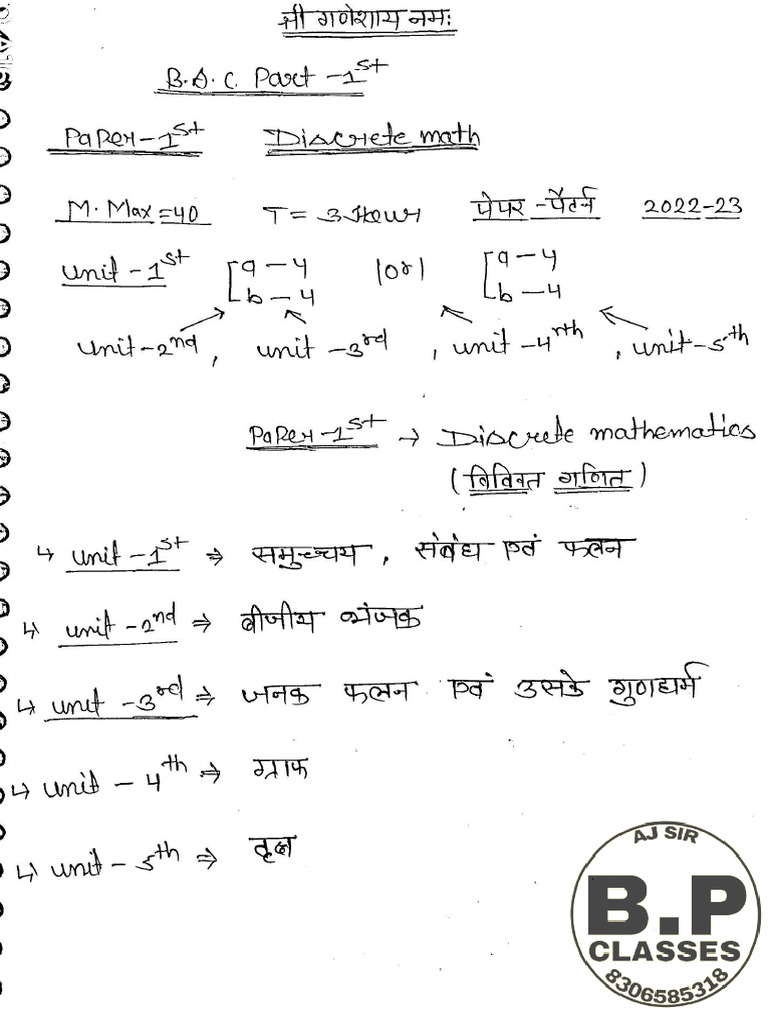 श्री गणेशाय नमः
B.S.C. Part-1st
PaPer-1st Discrete math
M. Max=40 T= 3 Hour पेपर-पैटर्न 2022-23
unit-1st [a-4 |or| [a-4
b-4 b-4
unit-2nd, unit-3rd, unit-4rth, unit-5th
PaPer-1st → Discrete mathematics
(विविक्त गणित)
↳ unit-1st ⇒ समुच्चय, संबंध एवं फलन
↳ unit-2nd ⇒ बीजीय व्यंजक
↳ unit-3rd ⇒ जनक फलन एवं उसके गुणधर्म
↳ unit-4th ⇒ ग्राफ
↳ unit-5th ⇒ वृक्ष
AJ SIR
B.P
CLASSES
8306585318